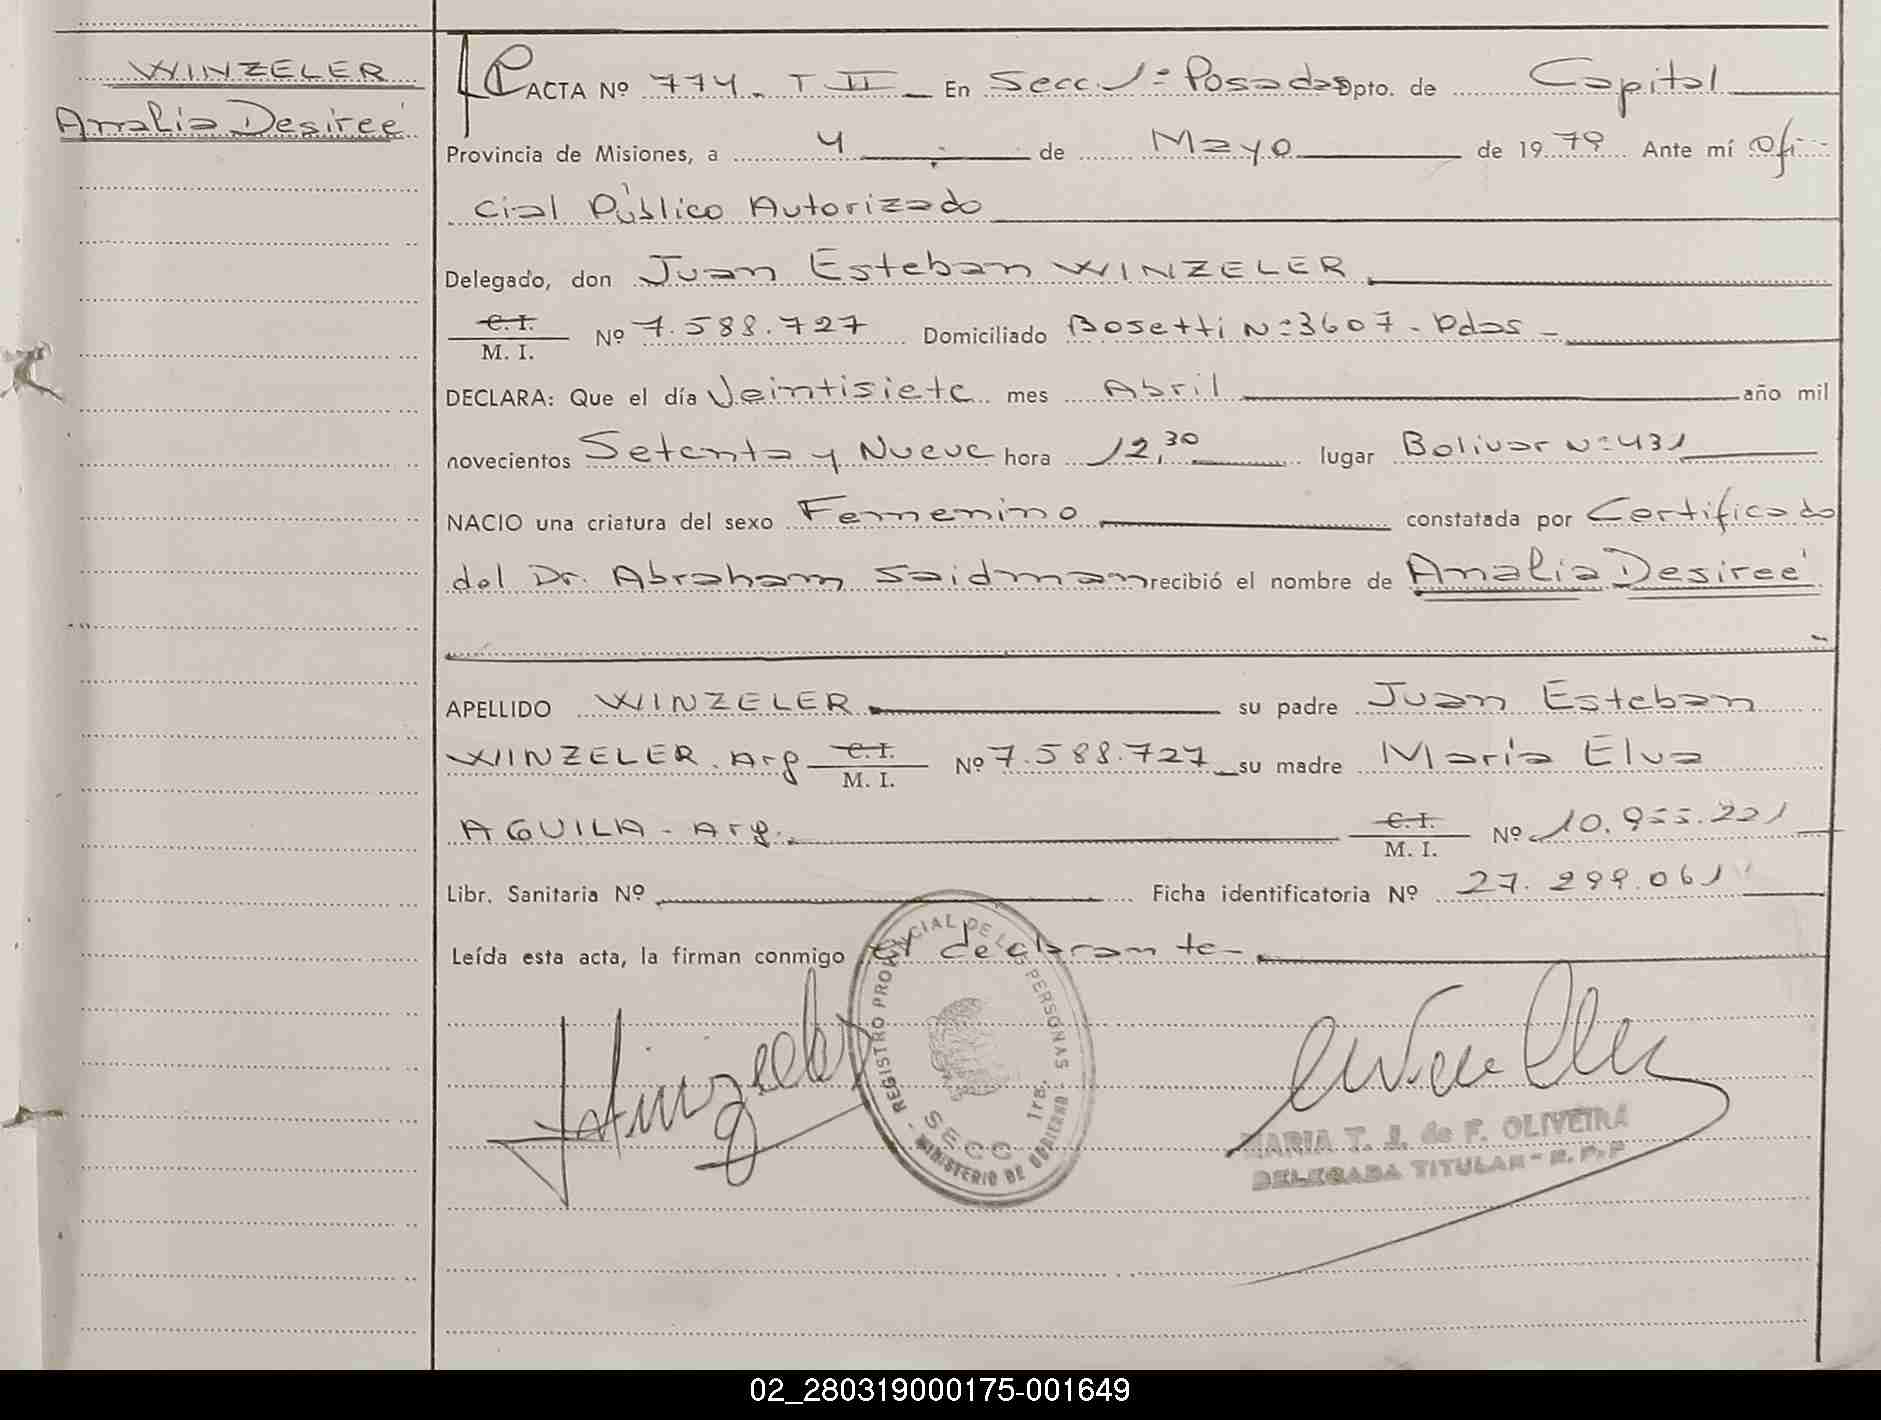 WINZELER
Analia Desireé
ACTA Nº 774. T II En Secc 1º Posadas Dpto. de Capital
Provincia de Misiones, a 4 de Mayo de 1979 Ante mí Ofi-
cial Público Autorizado
Delegado, don Juan Esteban WINZELER
C.I.
M. I. Nº 7.588.727 Domiciliado Bosetti Nº 3607 - Pdas -
DECLARA: Que el día Veintisiete mes Abril año mil
novecientos Setenta y Nueve hora 12,30 lugar Bolivar Nº 431
NACIO una criatura del sexo Femenino constatada por Certificado
del Dr. Abraham Saidman recibió el nombre de Analia Desireé
APELLIDO WINZELER su padre Juan Esteban
WINZELER. Arg C.I.
M. I. Nº 7.588.727 su madre Maria Elva
AGUILA - Arg. C.I.
M. I. Nº 10.955.221
Libr. Sanitaria Nº Ficha identificatoria Nº 27.299.061
Leída esta acta, la firman conmigo el declarante-
REGISTRO PROVINCIAL DE LAS PERSONAS - MINISTERIO DE GOBIERNO -
SECC. 1ra.
MARIA T. J. de F. OLIVEIRA
DELEGADA TITULAR - R. P. P
02_280319000175-001649